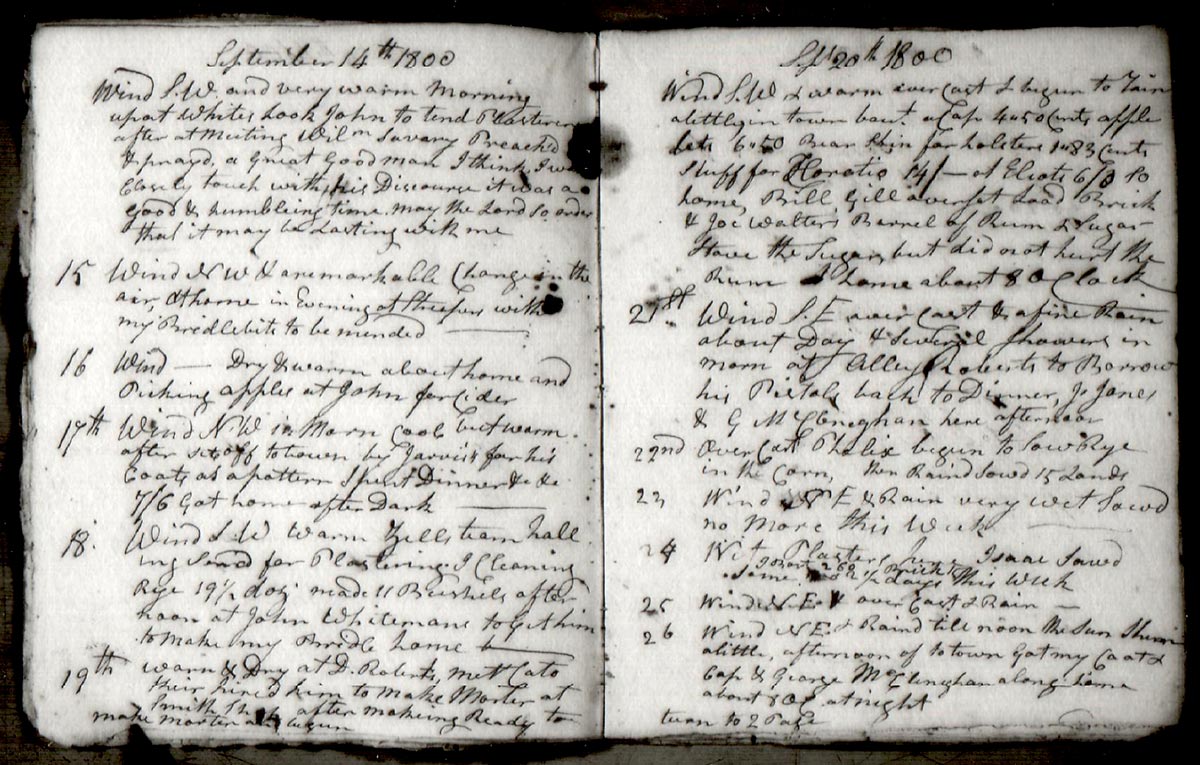 September 14th 1800
Wind S.W. and very warm Morning
up at Whites took John to tend Plasterer
after at Meeting Wilm Savary Preach'd
& pray'd, a Great Good man I think, I was
Closely touch with his Discourse it was a
good & humbleing time may the Lord so order
that it may be Lasting with me
15 Wind N W & a remarkable Change in the
air, at home in Evening at with
my Bridlebits to be mended
16 Wind — Dry & warm about home and
Picking apples at John for Cider
17th Wind N W in Morn Cool but warm
after set off to town by Jarvis's for his
Coat as a pattern Spent Dinner &c &c
7/6 Got home after Dark
18. Wind S.W warm team hall
ing Sand for Plastering. I Cleaning
Rye 19½ doz made 11 Bushels after
noon at John Whitemans to Get him
to make my Bridle home
19th warm & Dry at D. Roberts, met Cato
their hired him to make Morter at
Smith Shop after makeing Ready to
make morter and begun
Spt 20th 1800
Wind S.W & warm over cast & begun to Rain
a little, in town baut a Cap 4-50 Cents apple
6-50 Bear Skin for holsters 1-83 Cents
Stuff for Horatio 14/— at Eliots 6/8 So
home, Bill Gill overset Load Brick
& Joe Walters Barrel of Rum & Sugar
Stove the Sugar, but did not hurt the
Rum I home about 8 O Clock
21st Wind S.E over Cast & a fine Rain
about Day & Severil Showers in
morn at Alley Roberts to Borrow
his Pistols back to Dinner, Js Jones
& G McClenaghan here afternoon
22nd Over Cast Phelix begun to Sow Rye
in the Corn, then Raind Sowd 15 Lands
23 Wind N E & Rain very wet Sowd
no More this Week
24 Wet Plasterers Isaac Sawd
I Bort 262 Brick
Some, 2½ days this Week
25 Wind N.E. & over Cast & Rain —
26 Wind N E. & Raind till noon the Sun Shin
a little, afternoon of to town Got my Coat &
Cap & George McClenghan along home
about 8 OC at night
turn to 2 Page